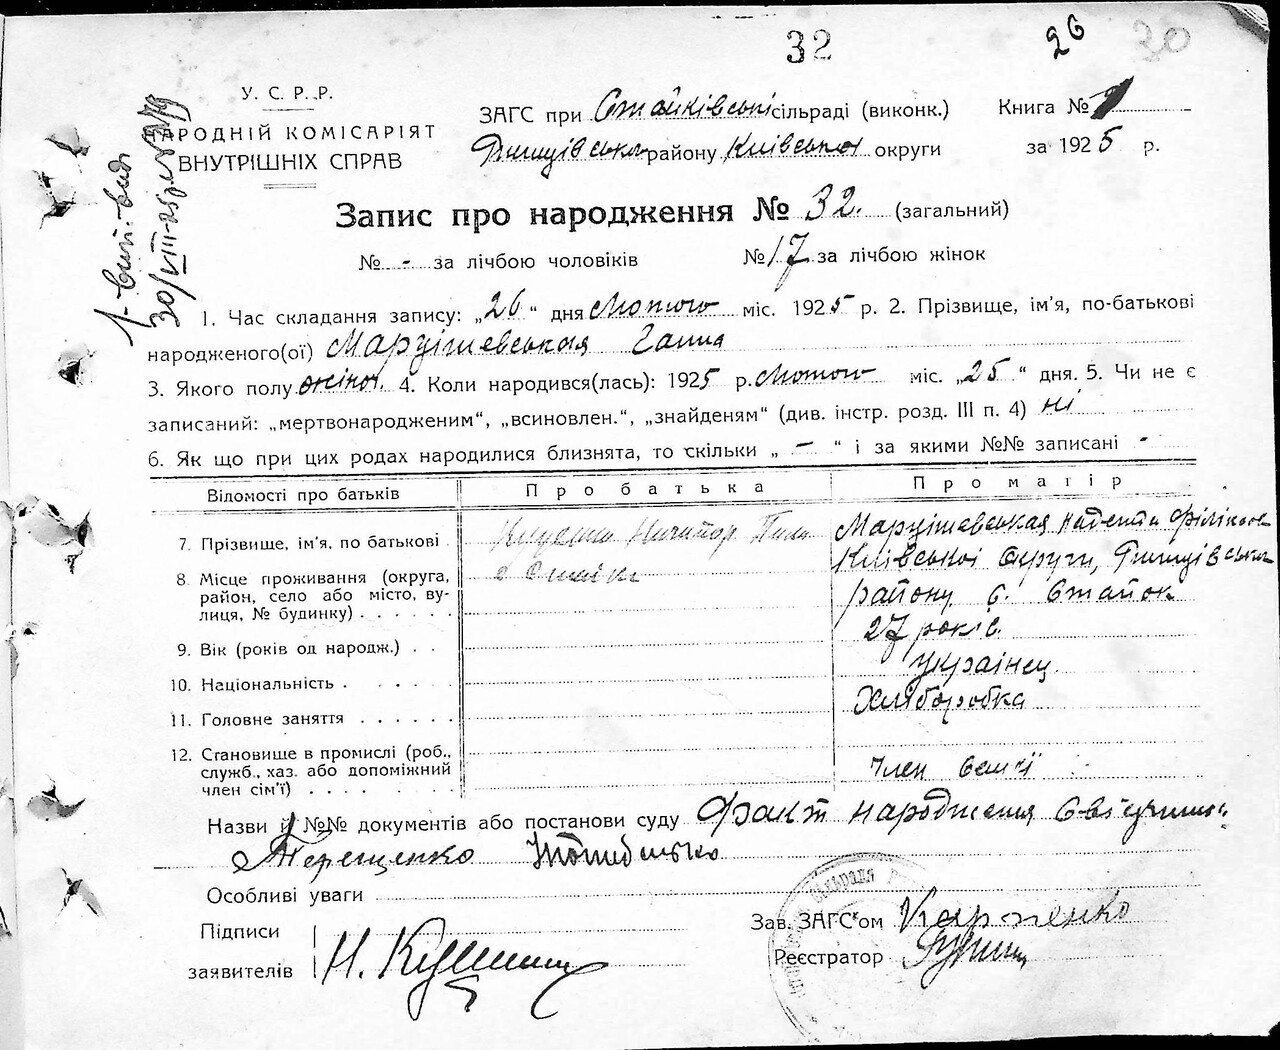 32
26
30
У. С. Р. Р.
НАРОДНІЙ КОМІСАРІЯТ
ВНУТРІШНІХ СПРАВ
ЗАГС при Стайківській сільраді (виконк.)
району Київської округи
Книга № 1
за 1925 р.
30/VIII-25
Запис про народження № 32. (загальний)
№ - за лічбою чоловіків
№ 17 за лічбою жінок
1. Час складання запису: „26“ дня Лютого міс. 1925 р. 2. Прізвище, ім'я, по-батькові
народженого(ої) Марцішевськая Ганна
3. Якого полу жіноч. 4. Коли народився(лась): 1925 р. Лютого міс. „25“ дня. 5. Чи не є
записаний: „мертвонародженим“, „всиновлен.“, „знайденям“ (див. інстр. розд. III п. 4) ні
6. Як що при цих родах народилися близнята, то скільки „ - “ і за якими №№ записані -
Відомості про батьків
Про батька
Про матір
7. Прізвище, ім'я, по батькові
Марцішевськая
8. Місце проживання (округа,
район, село або місто, ву-
лиця, № будинку)
Київської Округи,
району с. Стайок
9. Вік (років од народж.)
27 років.
10. Національність
українец
11. Головне заняття
Хліборобка
12. Становище в промислі (роб.,
служб., хаз. або допоміжний
член сім'ї)
Член семї
Назви й №№ документів або постанови суду Факт народження
Терещенко
Особливі уваги
Підписи
заявителів
Н.
Зав. ЗАГС'ом Карпенко
Реєстратор